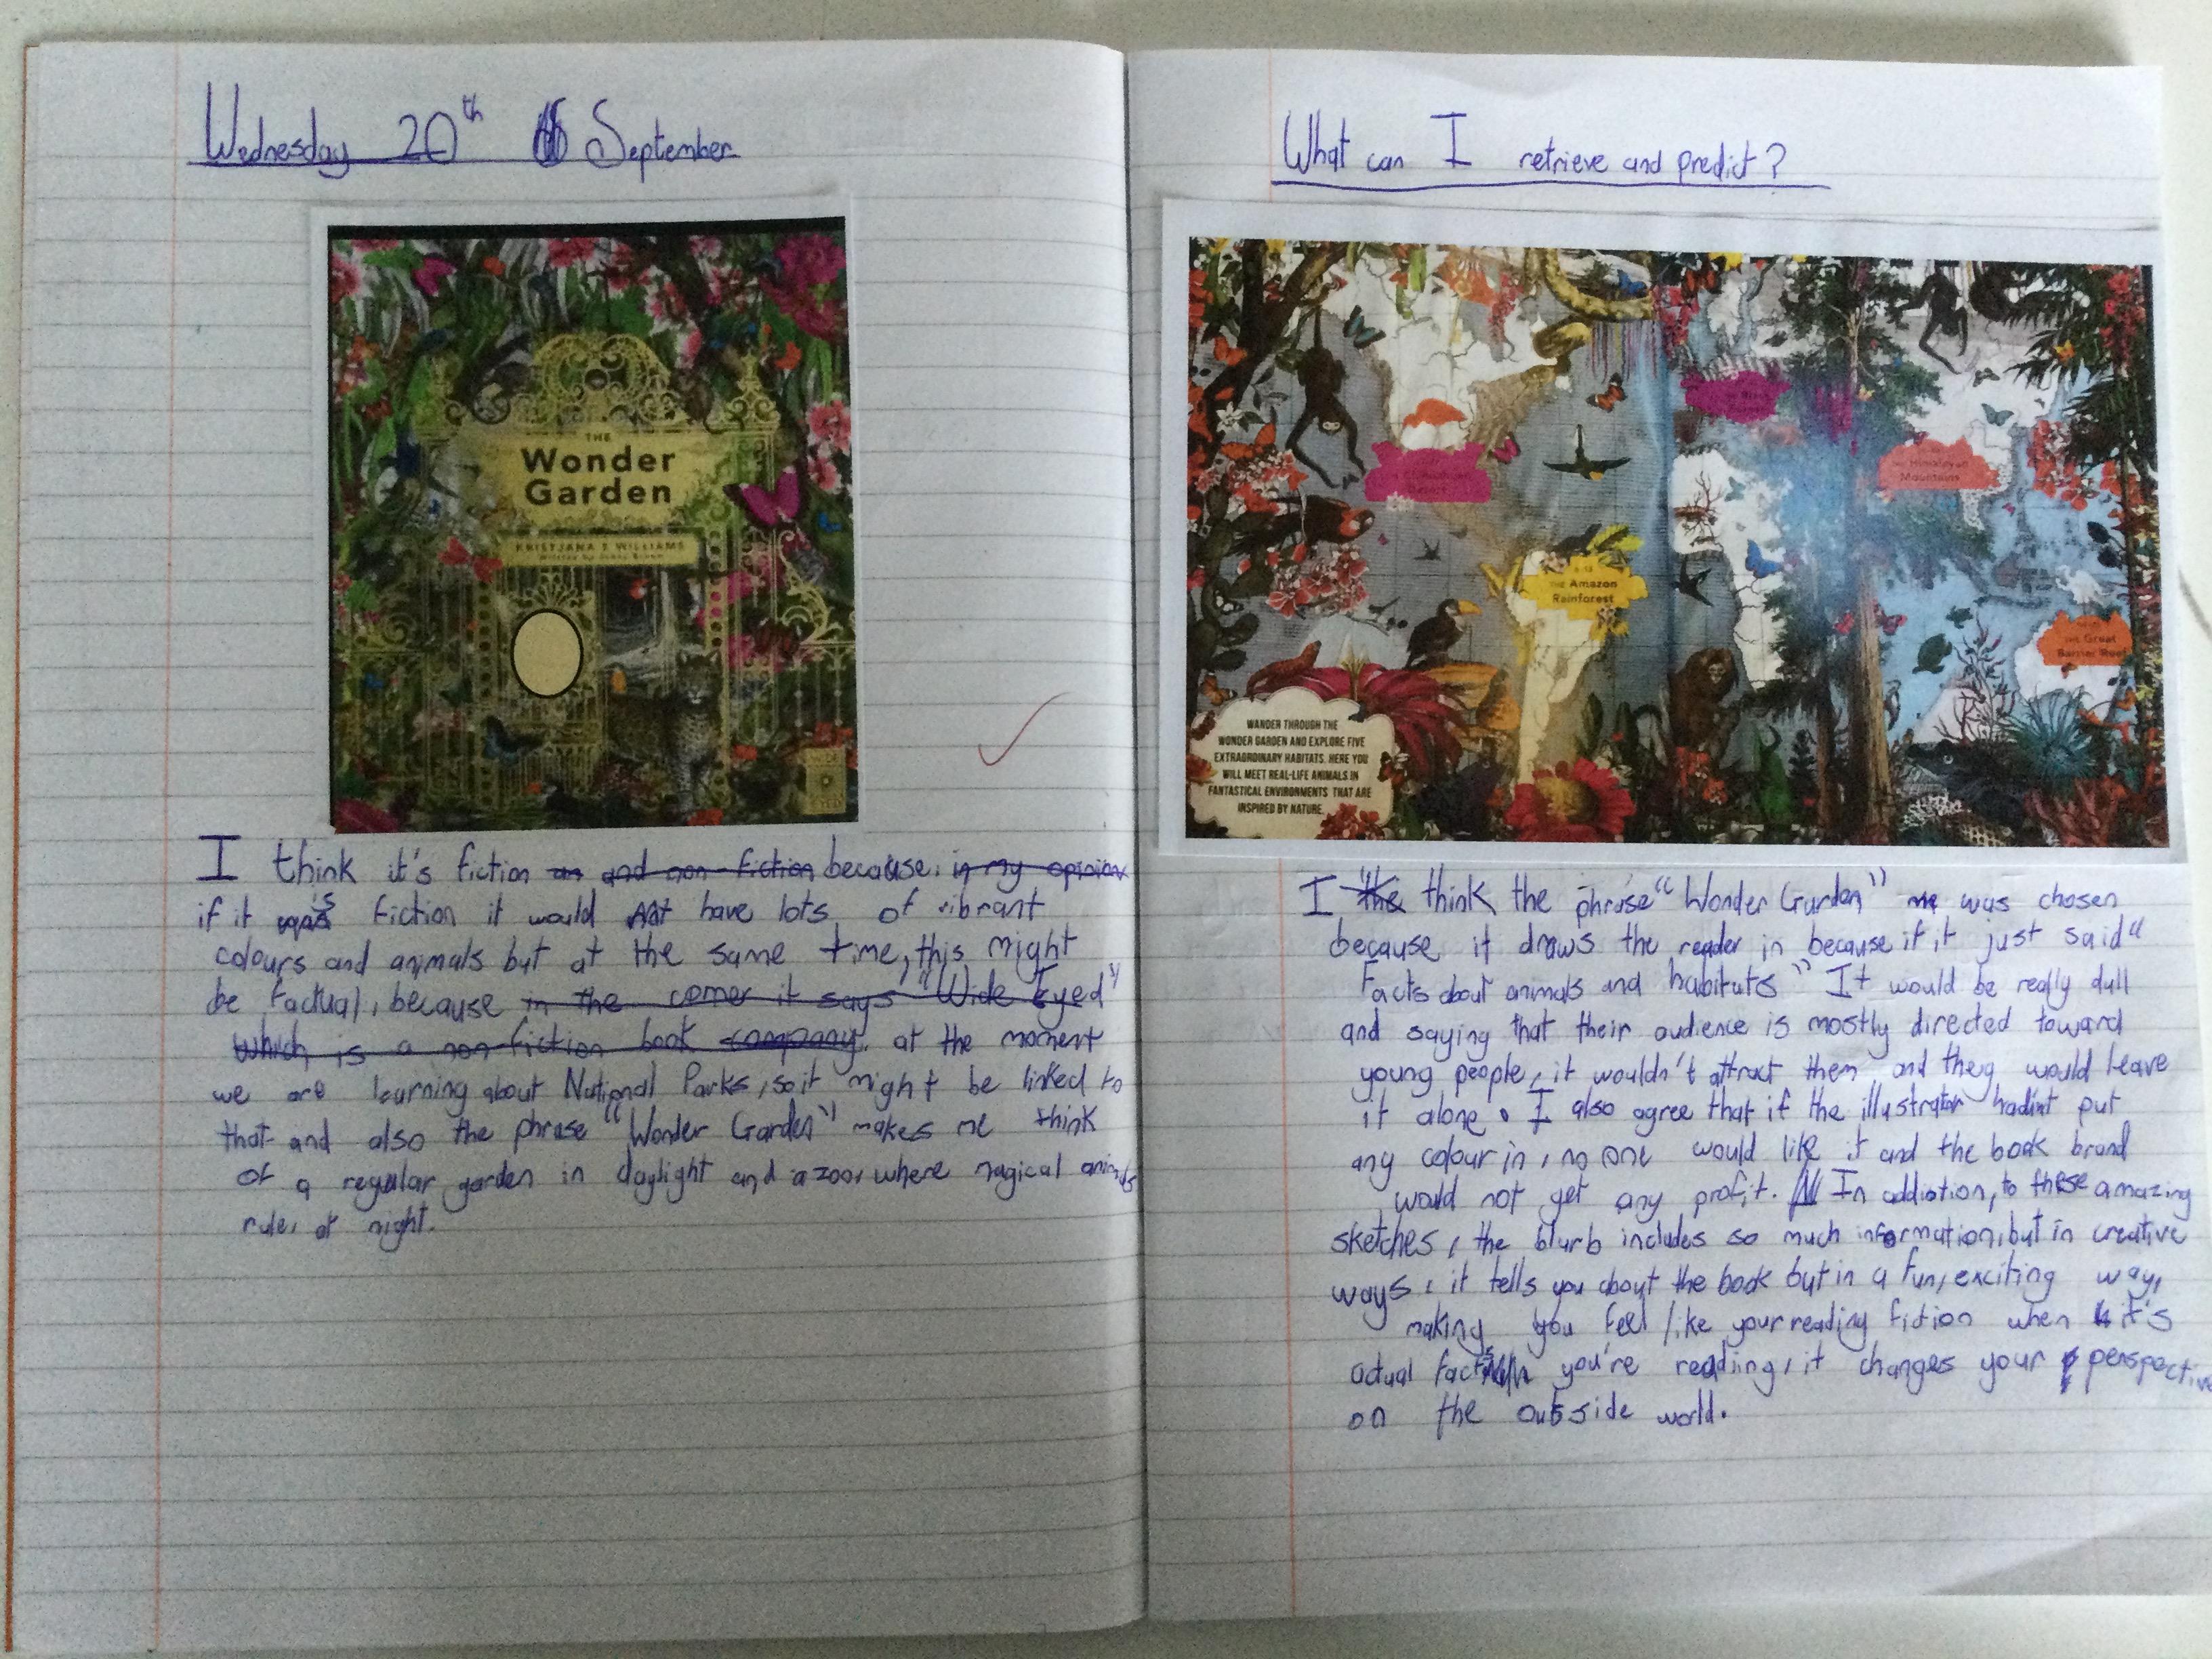 Wednesday 20th September
THE
Wonder
Garden
KRISTJANA S WILLIAMS
Written by Jenny Broom
WIDE
EYED
I think it's fiction an and non-fiction because, in my opinion
if it is fiction it would not have lots of vibrant
colours and animals but at the same time, this might
be factual, because in the corner it says "Wide Eyed"
which is a non-fiction book company. at the moment
we are learning about National Parks, so it might be linked to
that and also the phrase "Wonder Garden" makes me think
of a regular garden in daylight and a zoo, where magical animals
rule, at night.
What can I retrieve and predict?
THE Amazon
Rainforest
THE Himalayan
Mountains
THE Great
Barrier Reef
WANDER THROUGH THE
WONDER GARDEN AND EXPLORE FIVE
EXTRAORDINARY HABITATS. HERE YOU
WILL MEET REAL-LIFE ANIMALS IN
FANTASTICAL ENVIRONMENTS THAT ARE
INSPIRED BY NATURE.
I the think the phrase "Wonder Garden" me was chosen
because it draws the reader in because if it just said "
Facts about animals and habitats" It would be really dull
and saying that their audience is mostly directed toward
young people, it wouldn't attract them and they would leave
it alone. I also agree that if the illustrator hadn't put
any colour in, no one would like it and the book brand
would not get any profit. In addiotion, to these amazing
sketches, the blurb includes so much information, but in creative
ways, it tells you about the book but in a fun, exciting way,
making you feel like your reading fiction when it's
actual facts you're reading, it changes your perspective
on the outside world.